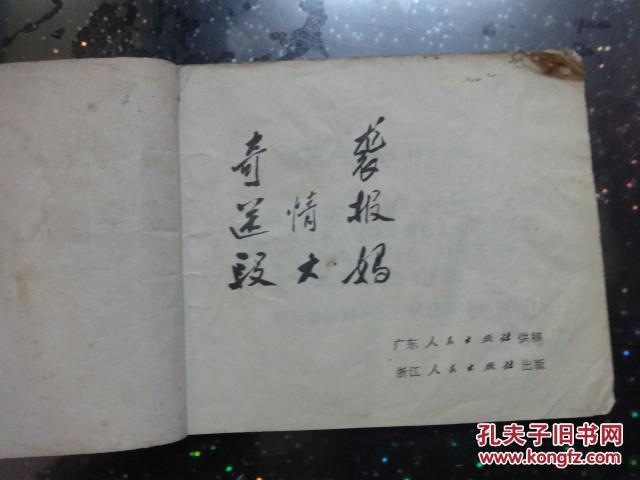 奇 袭
送 情 报
段 大 妈
广东人民出版社供稿
浙江人民出版社出版
孔夫子旧书网
www.kongfz.com